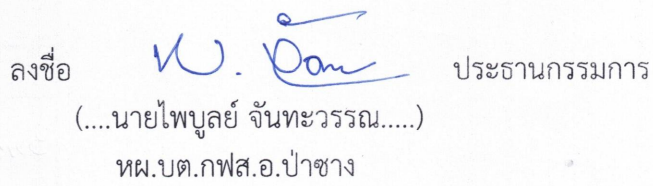 ลงชื่อ ประธานกรรมการ
(....นายไพบูลย์ จันทะวรรณ.....)
หผ.บต.กฟส.อ.ป่าซาง